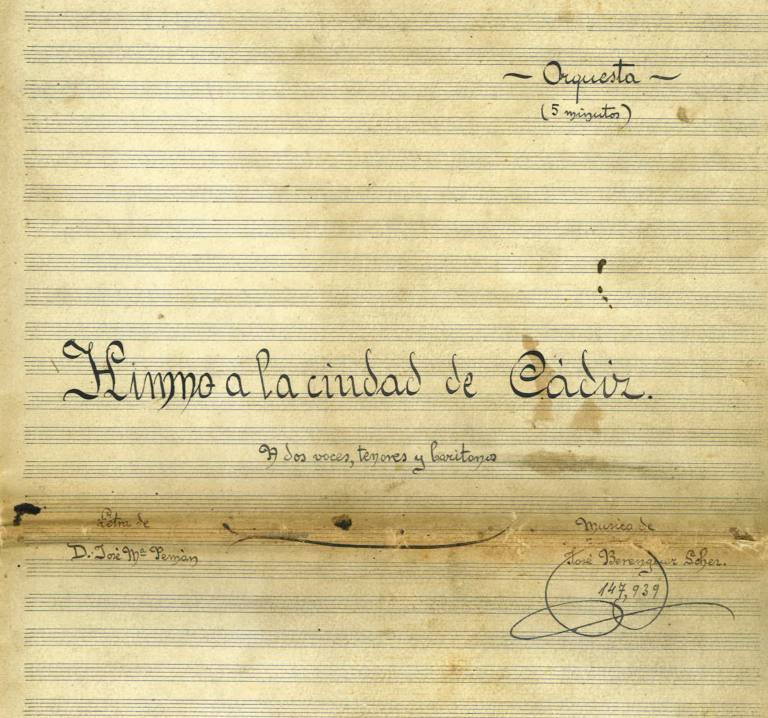 — Orquesta —
(5 minutos)
Himno a la ciudad de Cádiz.
A dos voces, tenores y baritonos
Letra de
D. José Mª Pemán
Musica de
José Berenguer Soher.
147,939